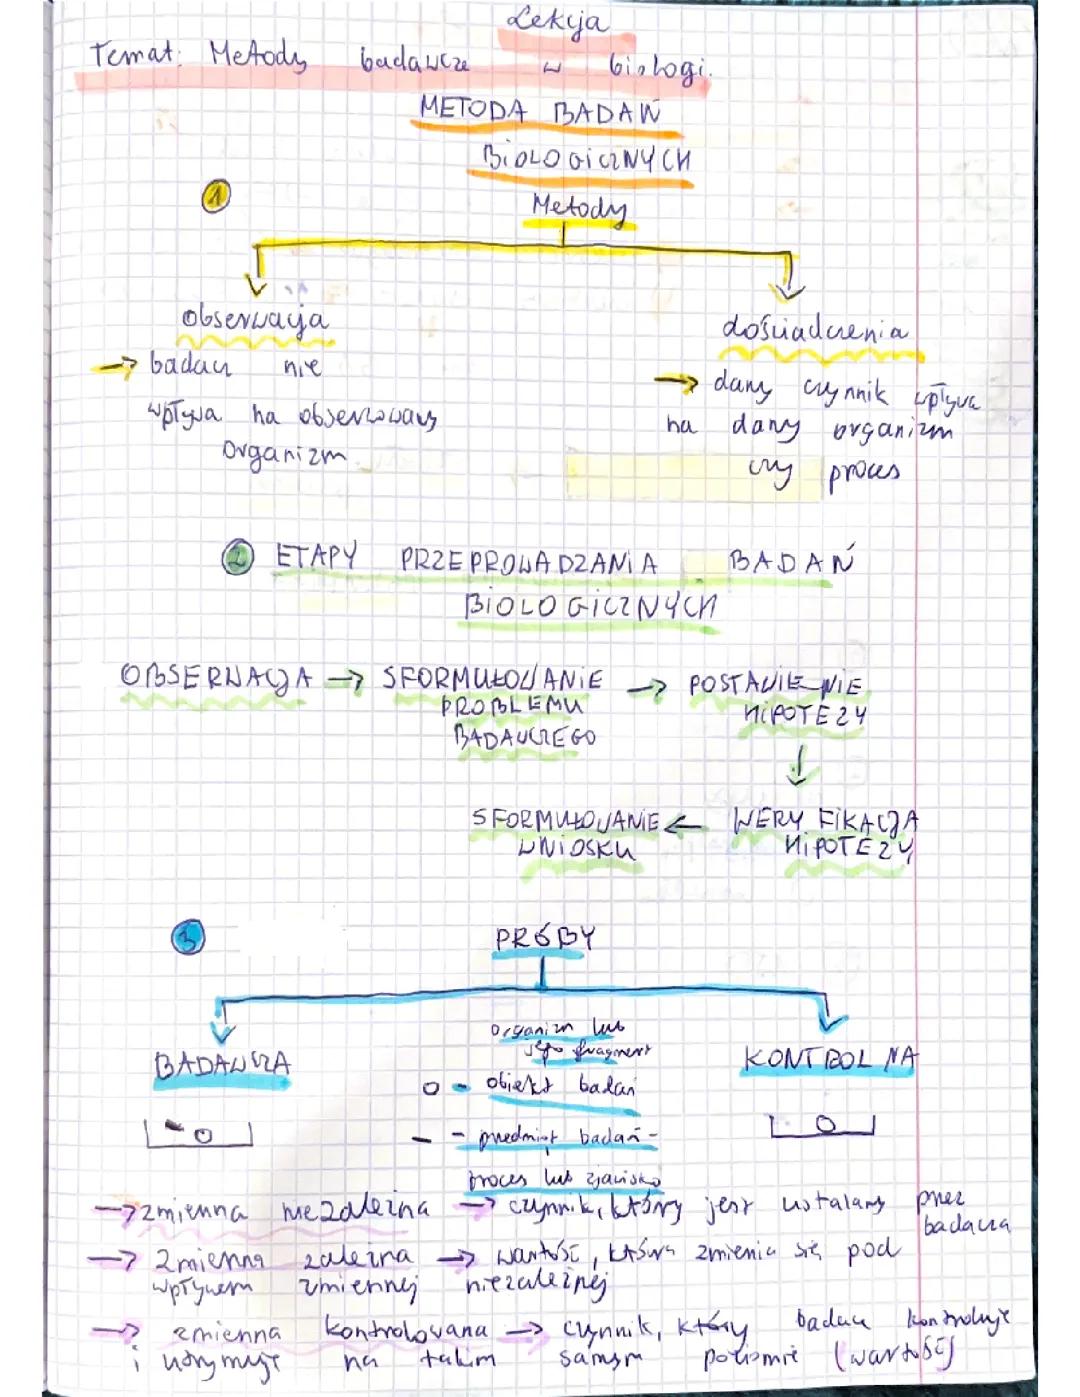 Lekcja
Temat: Metody badawcze w biologi.
METODA BADAŃ
BIOLOGICZNYCH
1
Metody
obserwacja
doświadczenia
→ badacz nie
wpływa na obserwowany
organizm
→ dany czynnik wpływa
na dany organizm
czy proces
2 ETAPY PRZEPROWADZANIA BADAŃ
BIOLOGICZNYCH
OBSERWACJA → SFORMUŁOWANIE → POSTAWIENIE
PROBLEMU HIPOTEZY
BADAWCZEGO
↓
SFORMUŁOWANIE ← WERYFIKACJA
WNIOSKU HIPOTEZY
3
PRÓBY
BADAWCZA
organizm lub
jego fragment
O - obiekt badań
– - przedmiot badań -
proces lub zjawisko
KONTROLNA
→ zmienna niezależna → czynnik, który jest ustalany przez
badacza
→ zmienna zależna → wartość, która zmienia się pod
wpływem zmiennej niezależnej
→ zmienna kontrolowana → czynnik, który badacz kontroluje
i utrzymuje na takim samym poziomie (wartość)